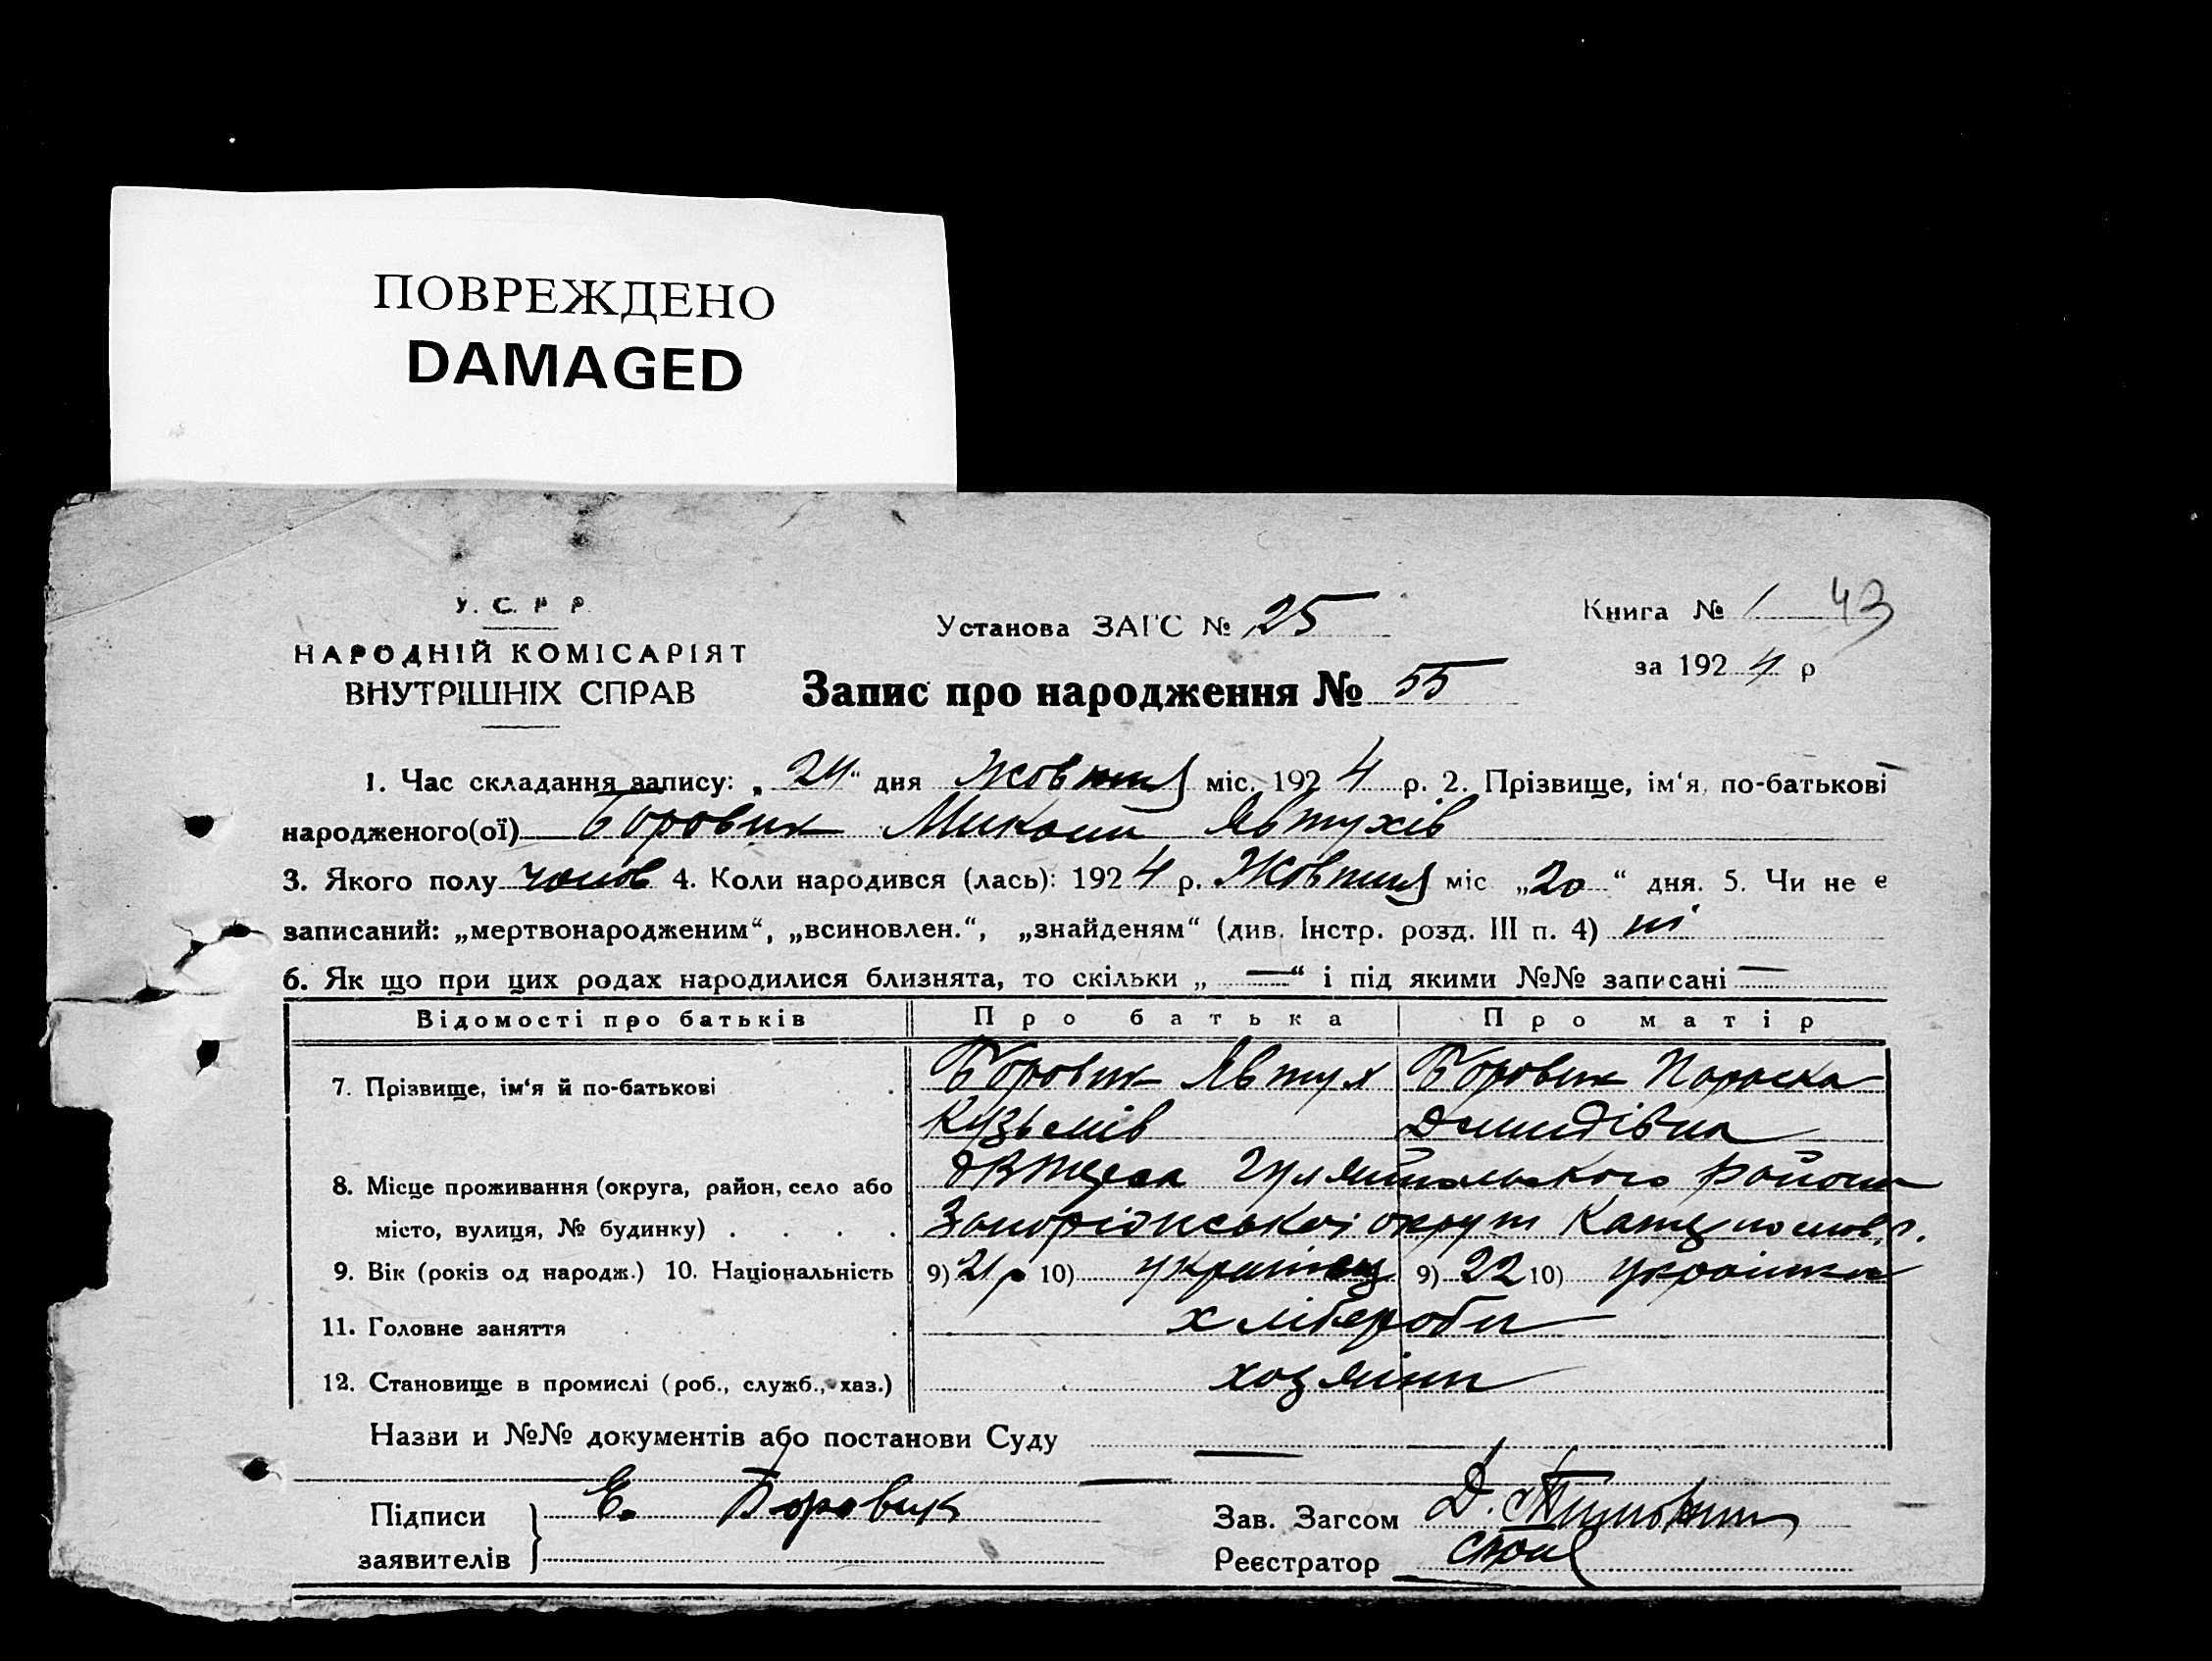 ПОВРЕЖДЕНО
DAMAGED
У. С. Р. Р.
НАРОДНІЙ КОМІСАРІЯТ
ВНУТРІШНІХ СПРАВ
Установа ЗАГС № 25
Книга № 1 43
за 1924 р
Запис про народження № 55
1. Час складання запису: „24“ дня Жовтня міс. 1924 р. 2. Прізвище, ім‘я, по-батькові
народженого(ої) Боровик Микола Явтухів
3. Якого полу чолов 4. Коли народився (лась): 1924 р. Жовтня міс „20“ дня. 5. Чи не є
записаний: „мертвонародженим“, „всиновлен.“, „знайденям“ (див. Інстр. розд. III п. 4) ні
6. Як що при цих родах народилися близнята, то скільки „—“ і під якими №№ записані —
Відомості про батьків Про батька Про матір
7. Прізвище, ім‘я й по-батькові Боровик Явтух Боровик Параска
Кузьмів Демидівна
8. Місце проживання (округа, район, село або Гуляйпольського района
місто, вулиця, № будинку) Запоріжської округи
9. Вік (років од народж.) 10. Національність 9) 21 р 10) українец 9) 22 10) українка
11. Головне заняття хлібероби
12. Становище в промислі (роб., служб., хаз.) хозяіни
Назви и №№ документів або постанови Суду —
Підписи заявителів Е. Боровик
Зав. Загсом Д.
Реєстратор